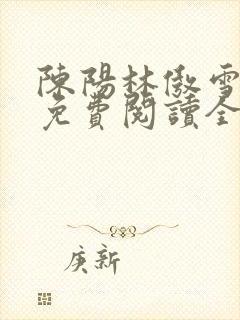 陳陽林傲雪
免費閱讀全
庚新